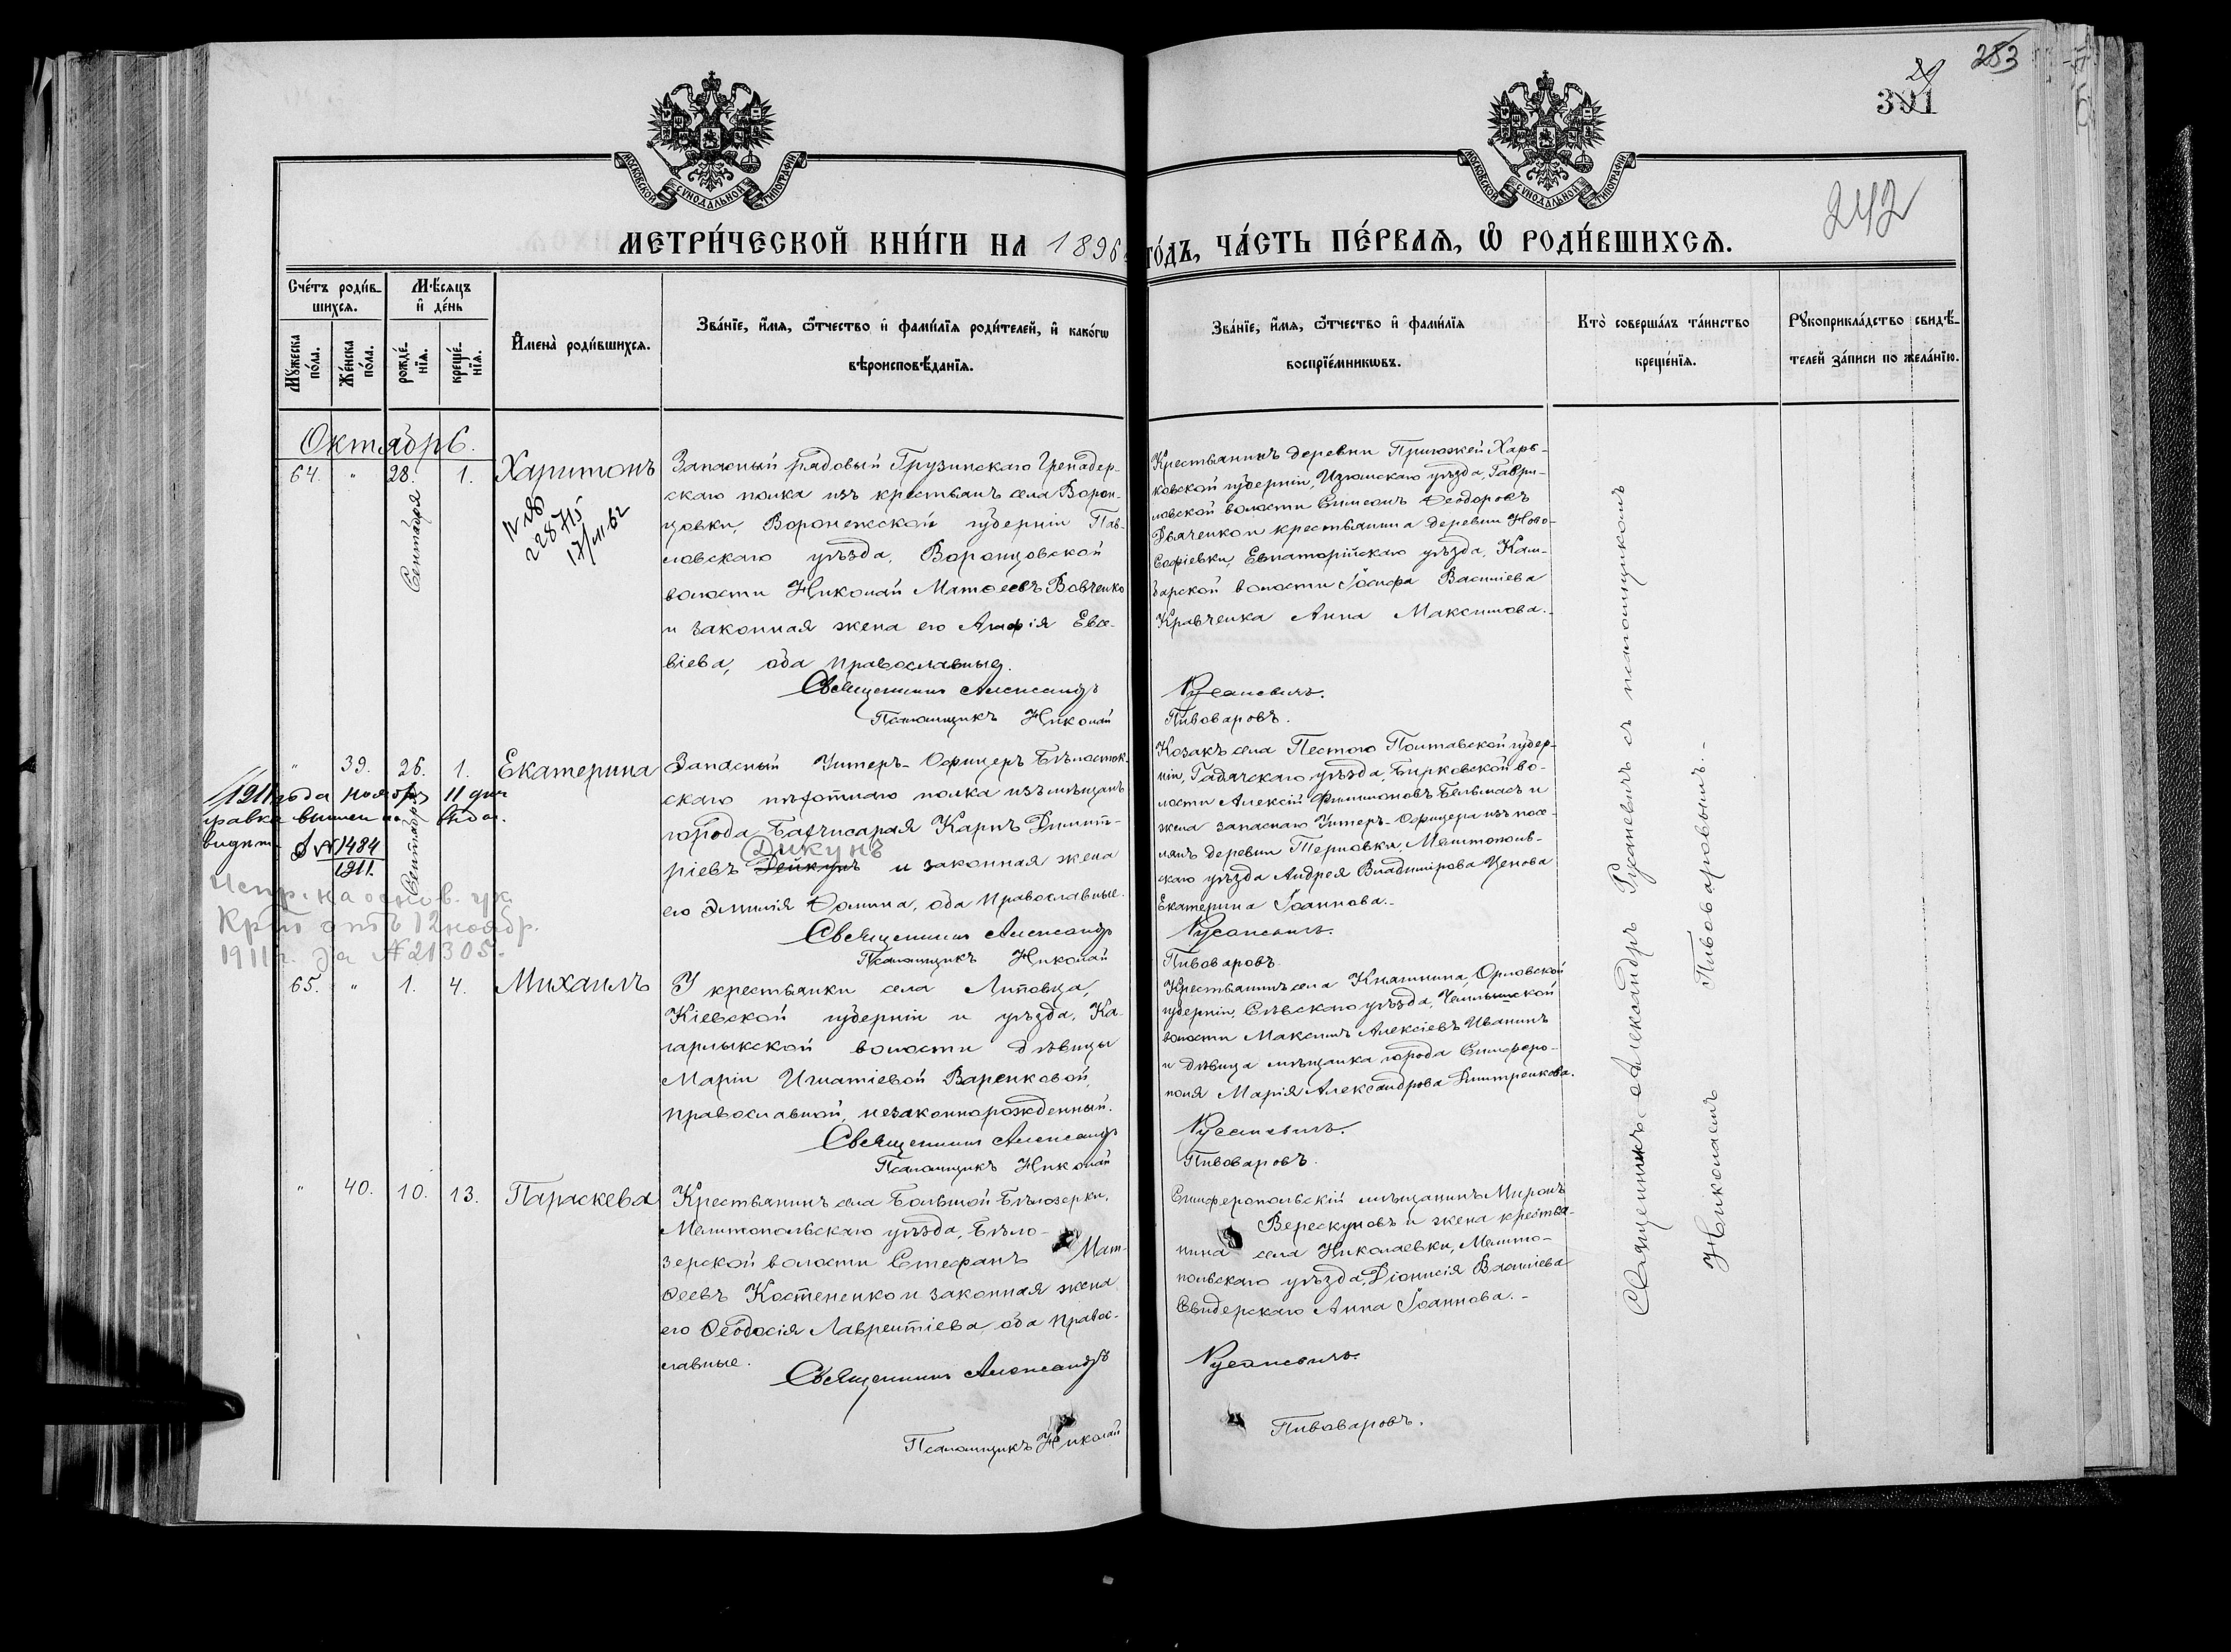 253
29
391
242
МОСКОВСКОЙ СѴНОДАЛЬНОЙ ТИПОГРАФІИ
МОСКОВСКОЙ СѴНОДАЛЬНОЙ ТИПОГРАФІИ
МЕТРИ́ЧЕСКОЙ КНИ́ГИ НА 1896 ГО́ДЪ, ЧА́СТЬ ПЕ́РВАѦ, Ѽ РОДИ́ВШИХСѦ.
Сче́тъ роди́в-
шихсѧ.
Мѣ́сѧцъ
и҆ де́нь
Мꙋжеска по́ла.
Же́нска по́ла.
рожде́-
нїѧ.
креще́-
нїѧ.
И҆мена̀ роди́вшихсѧ.
Зва́нїе, и҆́мѧ, ѻ҆́тчество и҆ фами́лїѧ роди́телей, и҆ како́гѡ
вѣроисповѣ́данїѧ.
Зва́нїе, и҆́мѧ, ѻ҆́тчество и҆ фами́лїѧ
воспрїе́мникѡвъ.
Кто̀ соверша́лъ та́инство
креще́нїѧ.
Рꙋкоприкла́дство свидѣ́-
телей за́писи по жела́нїю.
Октябрь.
64. " 28. 1. Харитонъ
Сентября
228715
17/
Запасный рядовый Грузинскаго Гренадер-
скаго полка изъ крестьянъ села Ворон-
цовки, Воронежской губерніи Пав-
ловскаго уѣзда, Воронцовской
волости Николай Матѳеевъ Вовченко
и законная жена его Агафія Евсе-
віева, оба православныя.
Священникъ Александръ
Псаломщикъ Николай
Крестьянинъ деревни Пригожей Харь-
ковской губерніи, Изюмскаго уѣзда, Гаври-
ловской волости Симеонъ Ѳеодоровъ
Дьяченко и крестьянина деревни Ново-
Софіевки, Евпаторійскаго уѣзда,
волости Іосифа Василіева
Кравченка Анна Максимова.
Русаневичъ.
Пивоваровъ.
" 39. 26. 1. Екатерина
Сентября
1911 года ноября 11 дня
выдан.
№ 1484
1911.
Испр. на основ. ук.
отъ 12 ноябр.
1911 г. за № 21305.
Запасный Унтеръ-Офицеръ Бѣлосток-
скаго пѣхотнаго полка изъ мѣщанъ
города Бахчисарая Карпъ Димит-
Дикунъ
ріевъ Дейкунъ и законная жена
его Эмилія Ѳомина, оба православные.
Священникъ Александръ
Псаломщикъ Николай
Козакъ села Полтавской губер-
ніи, Гадячскаго уѣзда, Бирковской во-
лости Алексій Филимоновъ и
жена запаснаго Унтеръ-Офицера изъ посе-
лянъ деревни Терновки, Мелитополь-
скаго уѣзда Андрея Владимірова Ценова
Екатерина Іоаннова.-
Русаневичъ.
Пивоваровъ.
65. " 1. 4. Михаилъ
У крестьянки села Липовца,
Кіевской губерніи и уѣзда, Ка-
гарлыкской волости дѣвицы
Маріи Игнатіевой Варенковой,
православной, незаконнорожденный.
Священникъ Александръ
Псаломщикъ Николай
Крестьянинъ села Княгинина, Орловской
губерніи, Сѣвскаго уѣзда,
волости Максимъ Алексіевъ Иванинъ
и дѣвица мѣщанка города Симферо-
поля Марія Александрова Дмитренкова.
Русаневичъ.
Пивоваровъ.
" 40. 10. 13. Параскева
Крестьянинъ села Большой Бѣлозерки,
Мелитопольскаго уѣзда, Бѣло-
зерской волости Стефанъ Мат-
ѳеевъ Костененко и законная жена
его Ѳеодосія Лаврентіева, оба право-
славные.
Священникъ Александръ
Псаломщикъ Николай
Симферопольскій мѣщанинъ Миронъ
Верескуновъ и жена крестья-
нина села Николаевки, Мелито-
польскаго уѣзда, Діонисія Василіева
Свидерскаго Анна Іоаннова.-
Русаневичъ.
Пивоваровъ.
Священникъ Александръ Русаневичъ съ псаломщикомъ
Николаемъ Пивоваровымъ.-